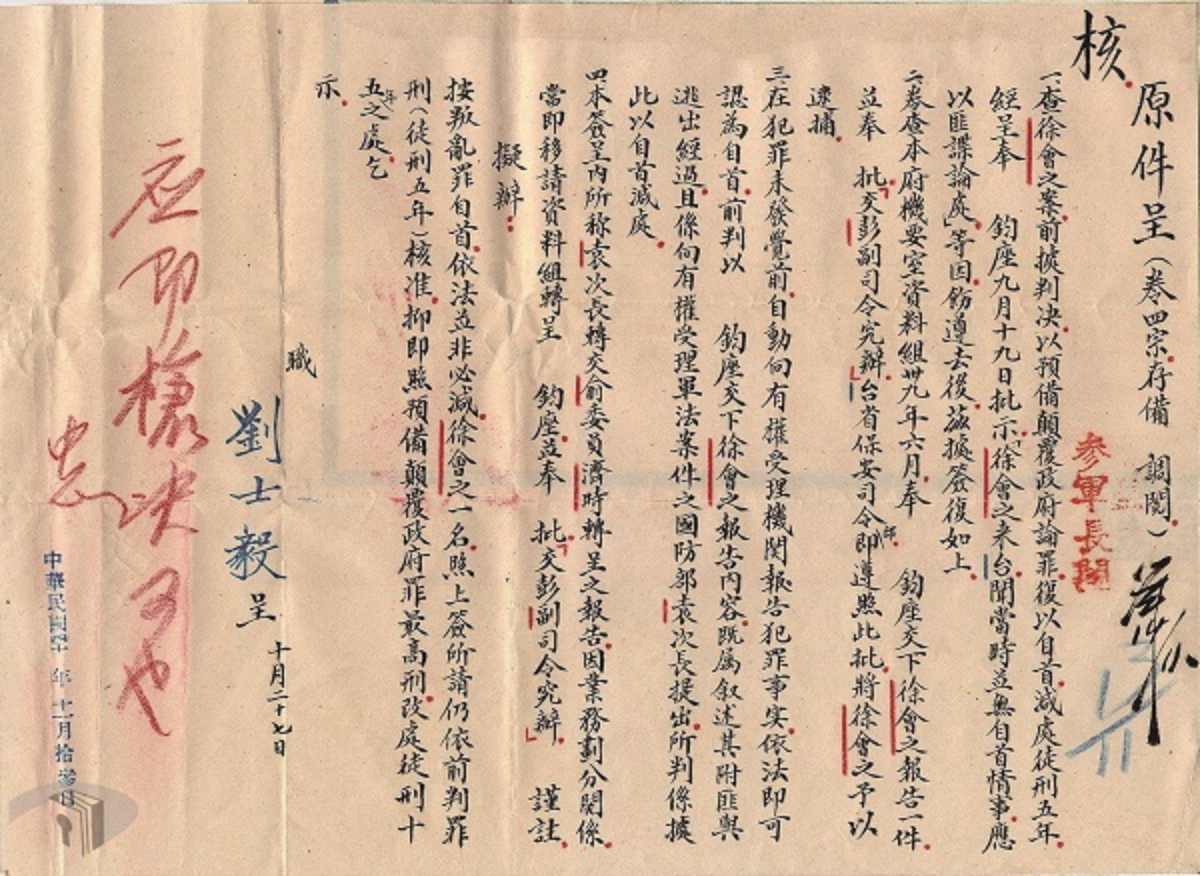 核
原件呈（卷四宗存備　調閱）
參軍長閱
一、查徐會之案前據判决以預備顛覆政府論罪復以自首減處徒刑五年
經呈奉　鈞座九月十九日批示「徐會之來台聞當時並無自首情事應
以匪諜論處」等因飭遵去後茲據簽復如上
二、卷查本府機要室資料組卅九年六月奉　鈞座交下徐會之報告一件
並奉　批「交彭副司令究辦」台省保安司令即遵照此批將徐會之予以
逮捕
三、在犯罪未發覺前自動向有權受理機関報告犯罪事实依法即可
認為自首前判以　鈞座交下徐會之報告內容既属叙述其附匪與
逃出經過且係向有權受理軍法案件之國防部袁次長提出所判係據
此以自首減處
四、本簽呈內所称袁次長轉交俞委員濟時轉呈之報告因業務劃分関係
當即移請資料組轉呈　鈞座並奉　批「交彭副司令究辦」　謹註
擬辦：
按叛亂罪自首依法並非必減徐會之一名照上簽所請仍依前判罪
刑（徒刑五年）核准抑即照預備顛覆政府罪最高刑改處徒刑十
五年之處乞
示
職
劉士毅呈　十月二十七日
应即槍决可也
中華民國　年十一月拾參日